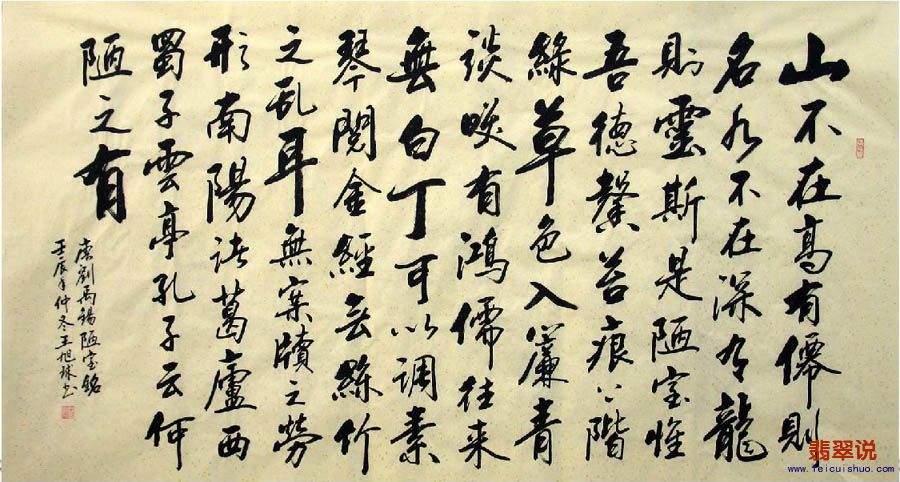 山不在高有僊則
名水不在深有龍
則靈斯是陋室惟
吾德馨苔痕上階
綠草色入簾青
談咲有鴻儒往来
無白丁可以调素
琴閱金經无絲竹
之乱耳無案牘之勞
形南陽诸葛廬西
蜀子雲亭孔子云何
陋之有
唐劉禹錫陋室銘
壬辰年仲冬王旭书
翡翠说
www.feicuishuo.com